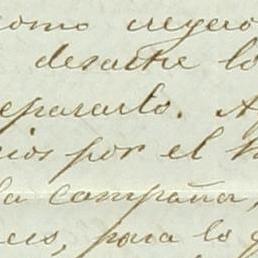 como
desastre lo
repararlo. A
cios por el
la campaña,
ces, para lo